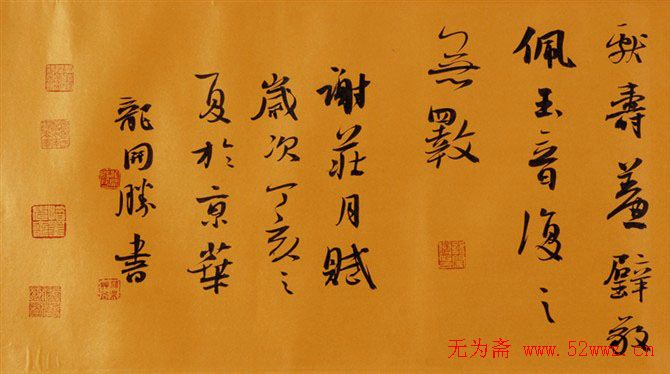 献壽羞璧敬
佩玉音復之
無斁
謝莊月賦
歲次丁亥之
夏於京華
龍開勝書
无为斋 www.52wwz.cn